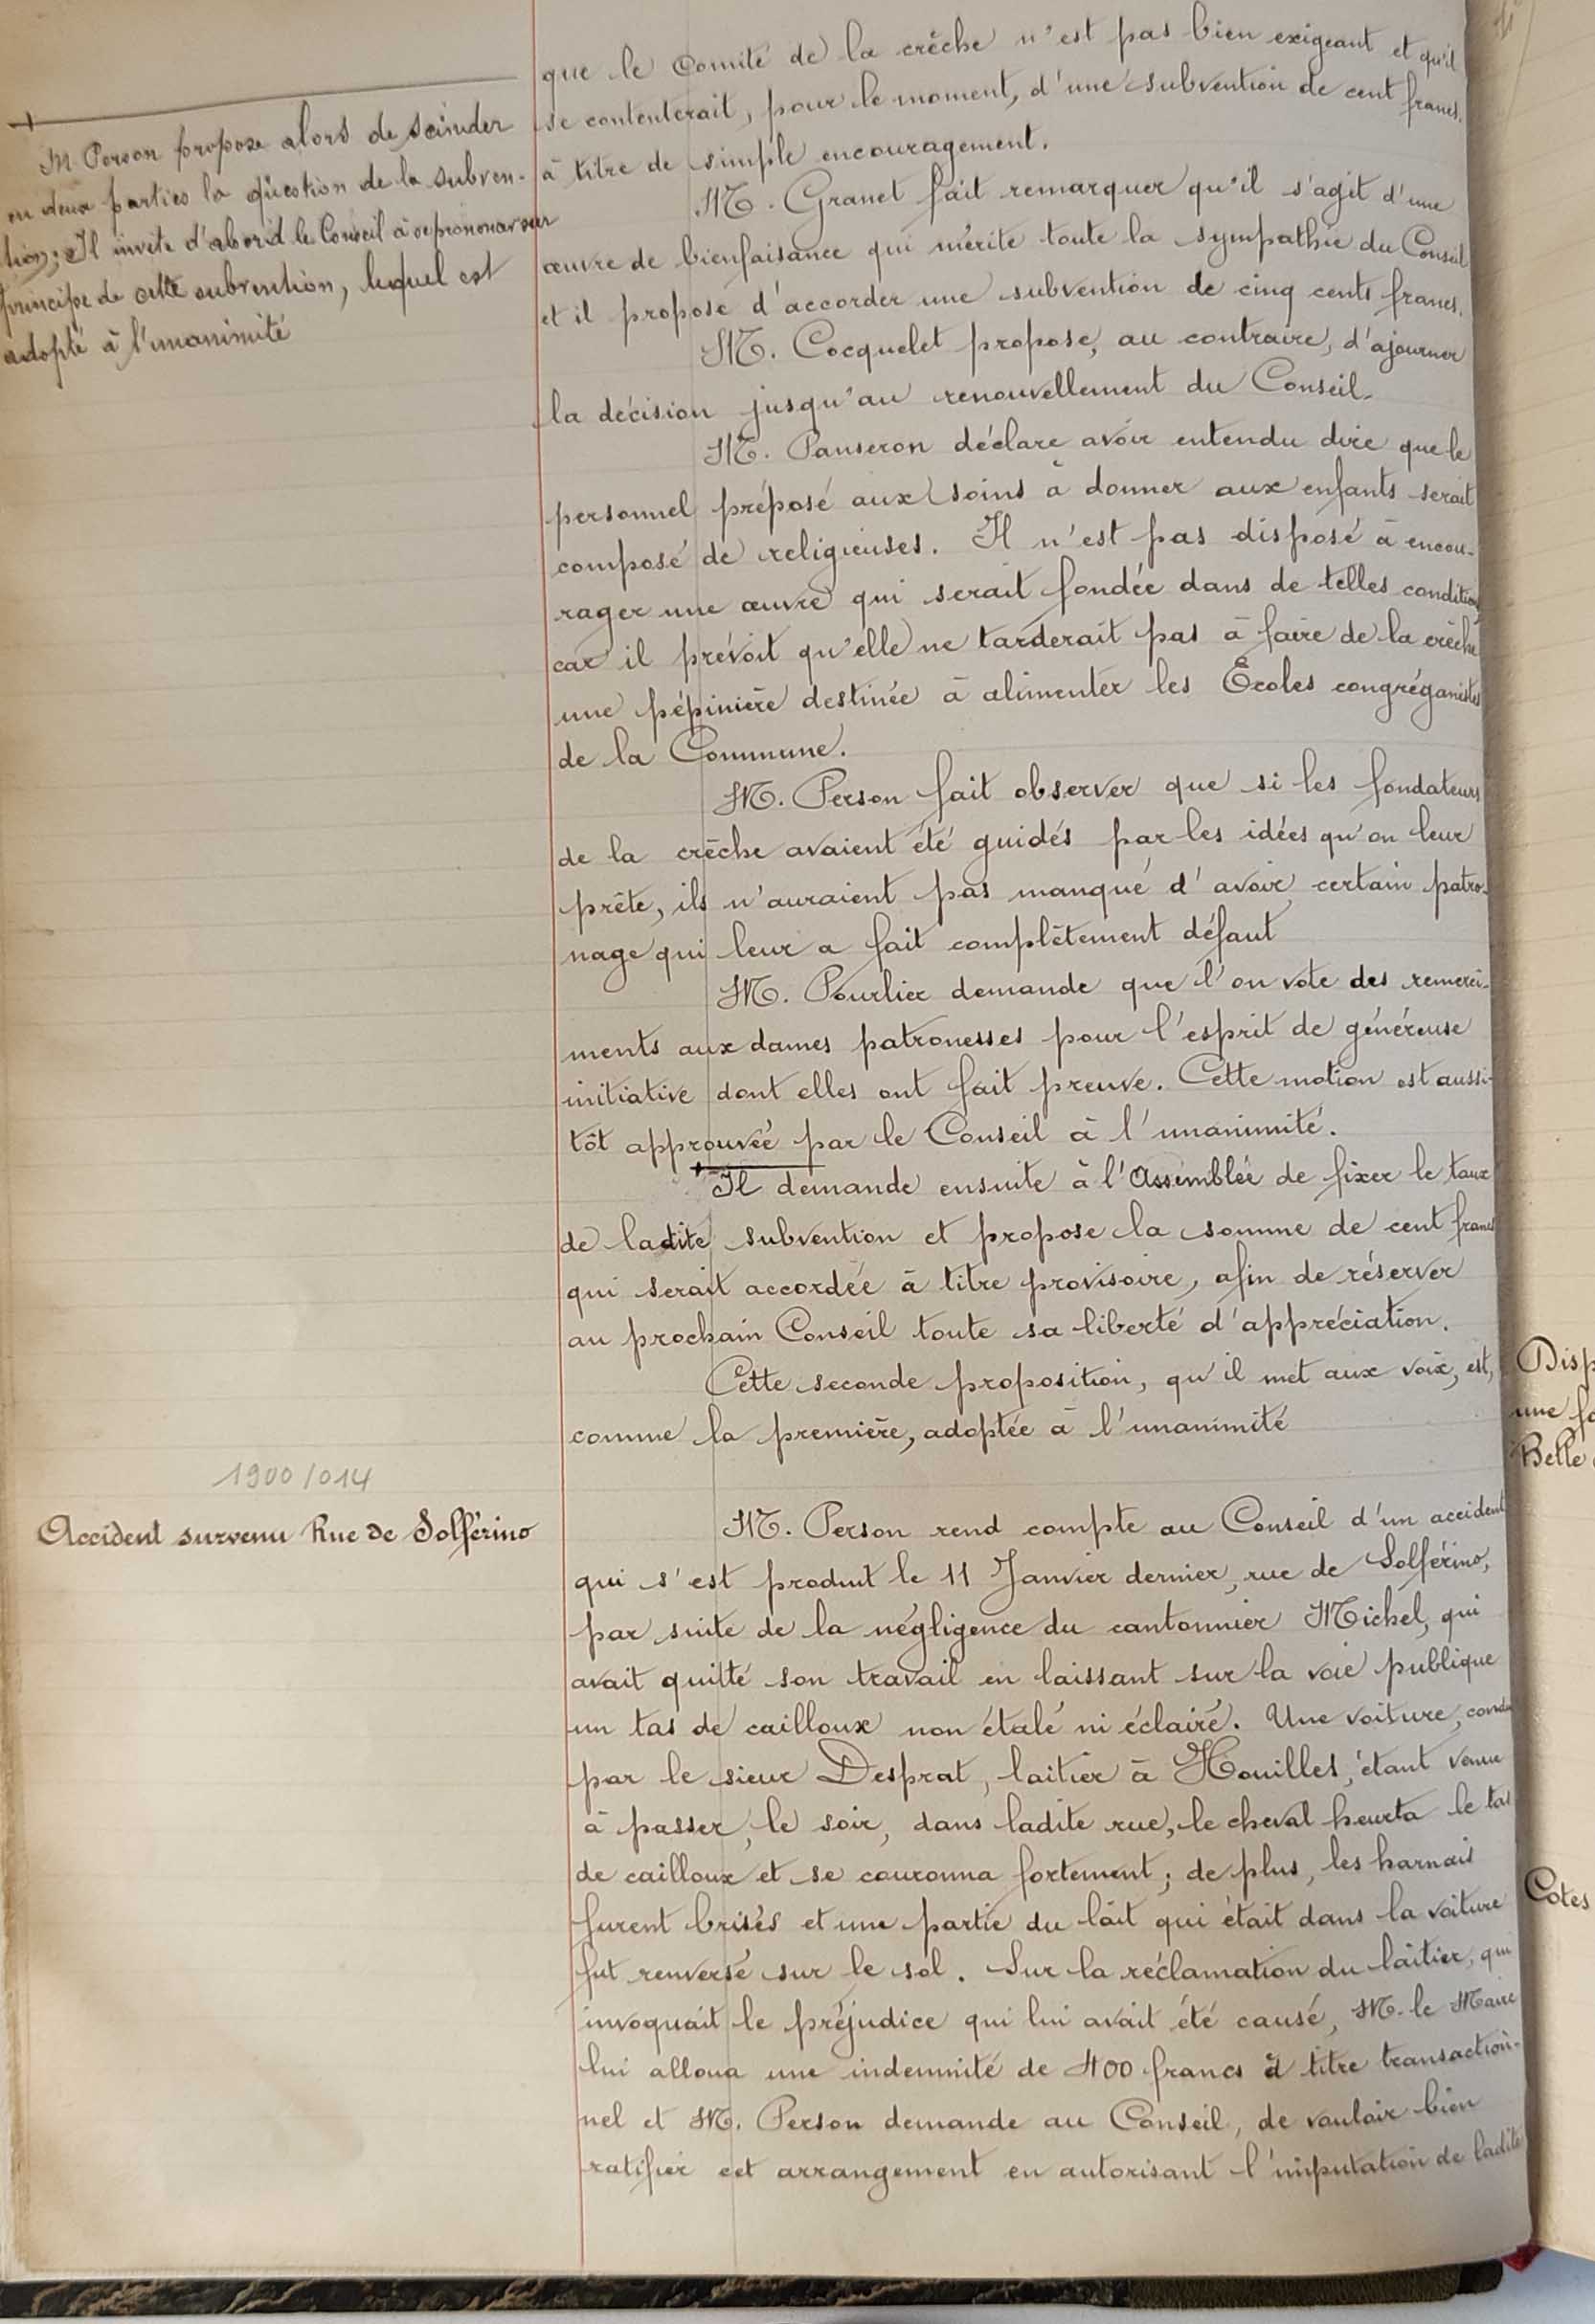 M. Person propose alors de scinder
en deux parties la question de la subven-
tion; Il invite d'abord le Conseil à se prononcer sur
principe de cette subvention, lequel est
adopté à l'unanimité
que le Comité de la crèche n'est pas bien exigeant et qu'il
se contenterait, pour le moment, d'une subvention de cent francs.
à titre de simple encouragement.
M. Granet fait remarquer qu'il s'agit d'une
œuvre de bienfaisance qui mérite toute la sympathie du Conseil
et il propose d'accorder une subvention de cinq cents francs.
M. Cocquelet propose, au contraire, d'ajourner
la décision jusqu'au renouvellement du Conseil.
M. Panseron déclare avoir entendu dire que le
personnel préposé aux soins à donner aux enfants serait
composé de religieuses. Il n'est pas disposé à encou-
rager une œuvre qui serait fondée dans de telles conditions
car il prévoit qu'elle ne tarderait pas à faire de la crèche
une pépinière destinée à alimenter les Écoles congréganistes
de la Commune.
M. Person fait observer que si les fondateurs
de la crèche avaient été guidés par les idées qu'on leur
prête, ils n'auraient pas manqué d'avoir certain patro-
nage qui leur a fait complètement défaut
M. Pourlier demande que l'on vote des remerci-
ments aux dames patronesses pour l'esprit de généreuse
initiative dont elles ont fait preuve. Cette motion est aussi-
tôt approuvée par le Conseil à l'unanimité.
Il demande ensuite à l'Assemblée de fixer le taux
de ladite subvention et propose la somme de cent francs
qui serait accordée à titre provisoire, afin de réserver
au prochain Conseil toute sa liberté d'appréciation.
Cette seconde proposition, qu'il met aux voix, est,
comme la première, adoptée à l'unanimité
1900/014
Accident survenu Rue de Solférino
M. Person rend compte au Conseil d'un accident
qui s'est produit le 11 Janvier dernier, rue de Solférino,
par suite de la négligence du cantonnier Michel, qui
avait quitté son travail en laissant sur la voie publique
un tas de cailloux non étalé ni éclairé. Une voiture,
par le sieur Desprat, laitier à Houilles, étant venue
à passer, le soir, dans ladite rue, le cheval heurta le tas
de cailloux et se couronna fortement; de plus, les harnais
furent brisés et une partie du lait qui était dans la voiture
fut renversé sur le sol. Sur la réclamation du laitier, qui
invoquait le préjudice qui lui avait été causé, M. le Maire
lui alloua une indemnité de 400 francs à titre transaction-
nel et M. Person demande au Conseil, de vouloir bien
ratifier cet arrangement en autorisant l'imputation de ladite
Disp
une fo
Belle
Cotes